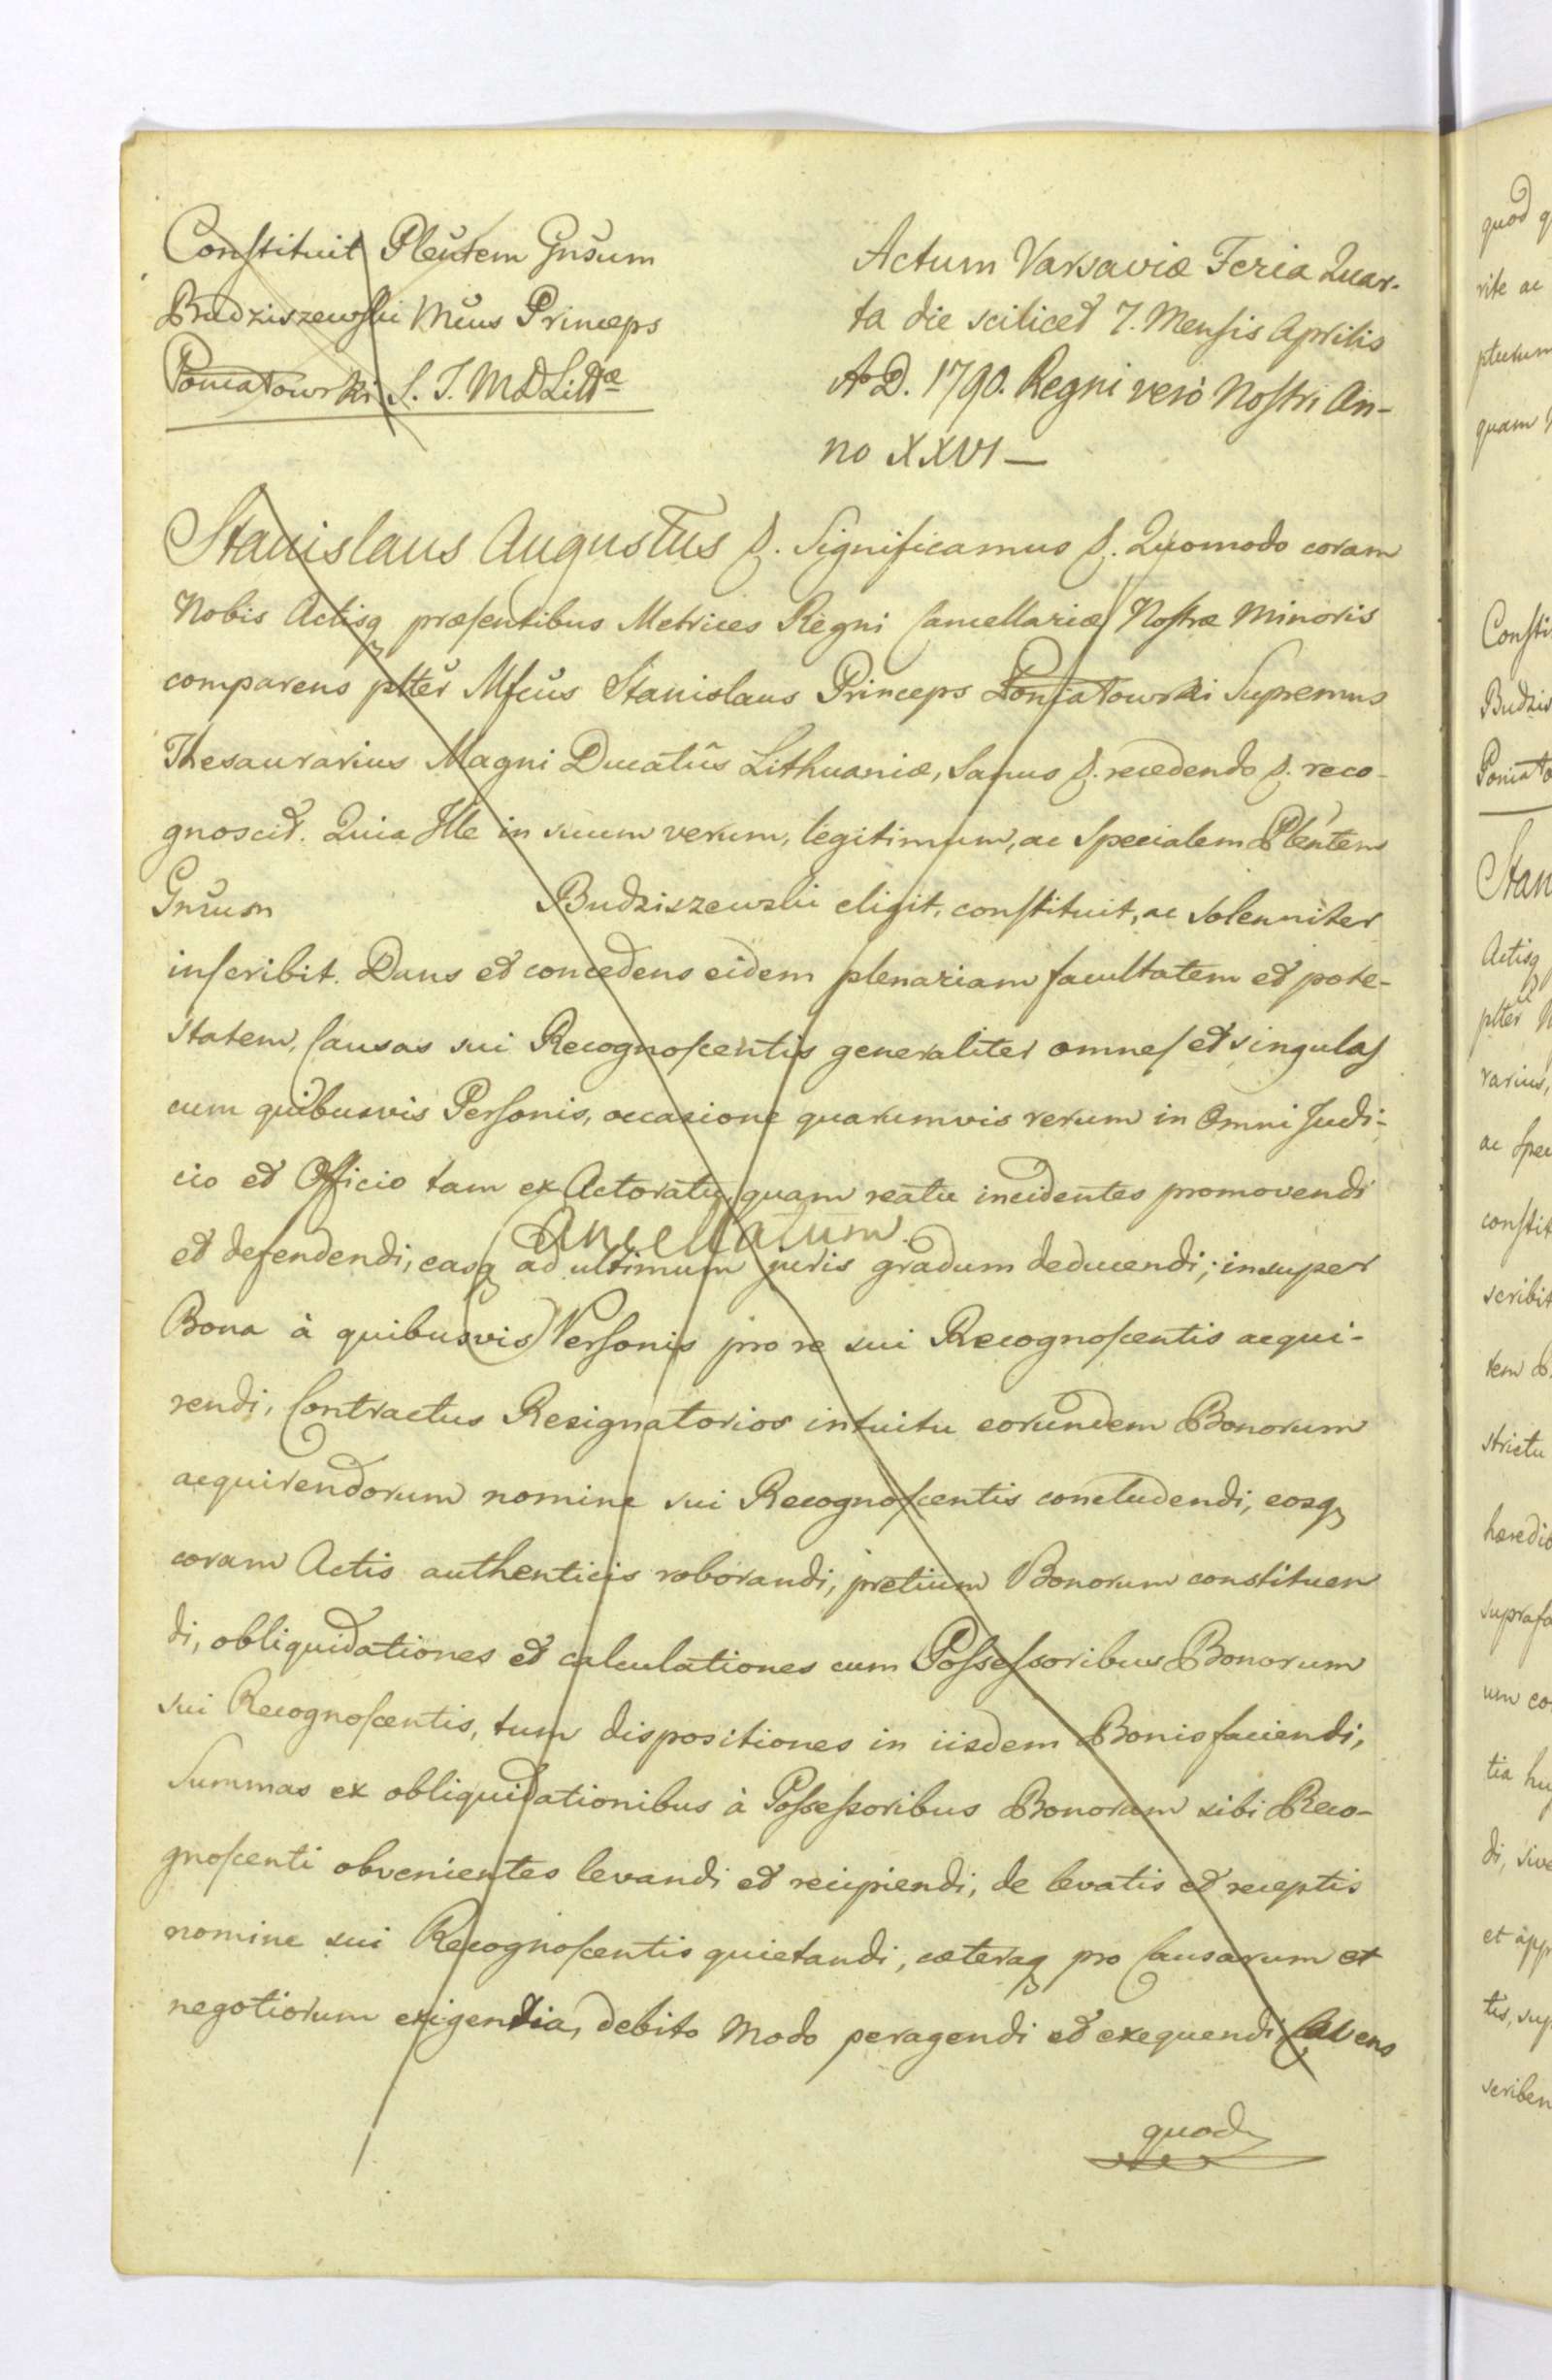 Constituit Plentem Gnsum
Budziszewski Mcus Princeps
Poniatowski S. T. M D Littæ
Actum Varsaviæ Feria Quar-
ta die scilicet 7. Mensis Aprilis
A D. 1790. Regni verò Nostri An-
no XXVI —
Stanislaus Augustus Significamus Quomodo coram
Nobis Actisq præsentibus Metrices Regni Cancellariæ Nostræ Minoris
comparens pltter Mfcus Stanislaus Princeps Poniatowski Supremus
Thesaurarius Magni Ducatûs Lithuaniæ, Sanus recedendo reco-
gnoscit. Quia Ille in suum verum, legitimum, ac Specialem Plentem
Gnsum Budziszewski eligit, constituit, ac solenniter
inscribit. Dans et concedens eidem plenariam facultatem et pote-
statem, Causas sui Recognoscentis generaliter omnes et singulas
cum quibusvis Personis, occasione quarumvis rerum in Omni Judi-
cio et Officio tam ex Actoratu, quam reatu incidentes promovendi
Cancellatum.
et defendendi, easq ad ultimum juris gradum deducendi; insuper
Bona à quibusvis Personis pro re sui Recognoscentis acqui-
rendi, Contractus Resignatorios intuitu eorundem Bonorum
acquirendorum nomine sui Recognoscentis concludendi, eosq
coram Actis authenticis roborandi, pretium Bonorum constituen
di, obliquidationes et calculationes cum Possessoribus Bonorum
sui Recognoscentis, tum dispositiones in iisdem Bonis faciendi,
Summas ex obliquidationibus à Possessoribus Bonorum sibi Reco-
gnoscenti obvenientes levandi et recipiendi, de levatis et receptis
nomine sui Recognoscentis quietandi, cæteraq pro Causarum et
negotiorum exigentia, debito modo peragendi et exequendi. Cavens
quod
quod q
rite ac
quam
Consti
Budzis
Poniato
Stan
Actisq
pltter
rarius,
ac Spec
constit
scribit
tem
strictu
hæredi
suprafa
um co
tia hu
di, sive
et app
tis, sup
scriben